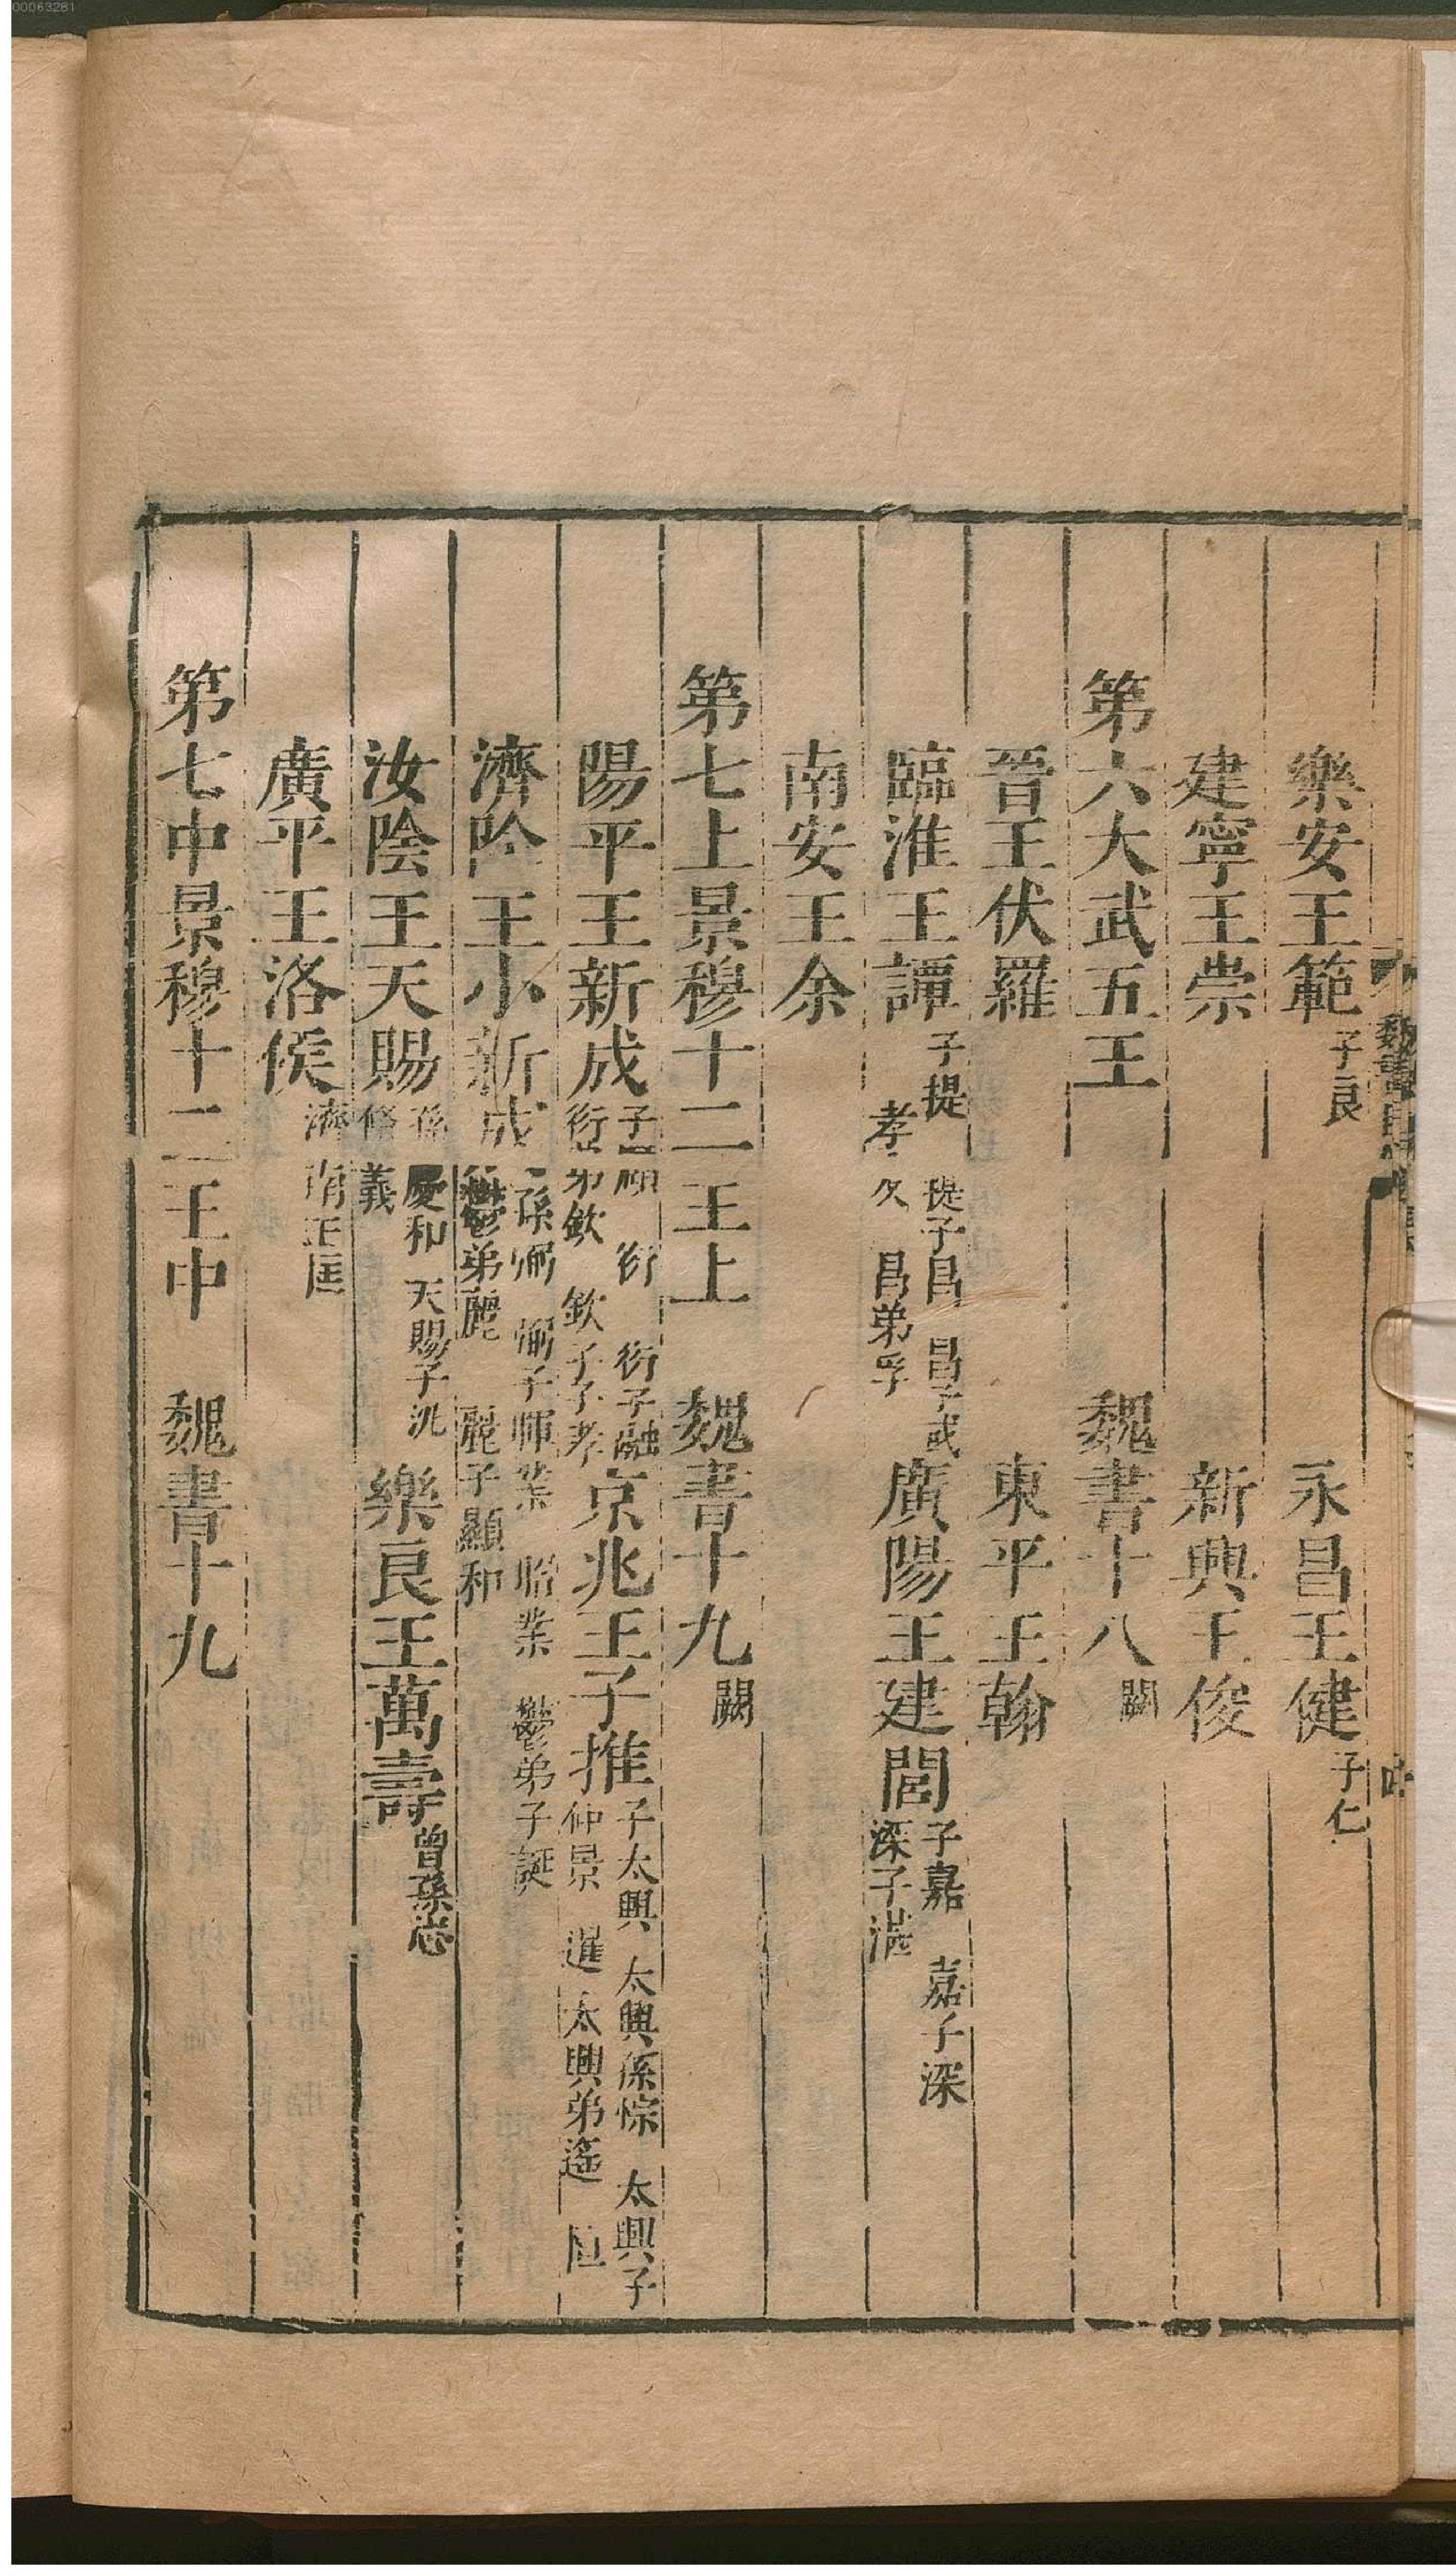 00063281
樂安王範子良 永昌王健子仁
建寧王崇 新興王俊
第六大武五王 魏書十八闕
晉王伏羅 東平王翰
臨淮王譚子提 提子昌 昌子或 孝友 昌弟孚 廣陽王建閭子嘉 嘉子深 深子湛
南安王余
第七上景穆十二王上 魏書十九闕
陽平王新成子頤 衍 衍子融 衍弟欽 欽子子孝 京兆王子推子太興 太興孫悰 太興子仲景 暹 太興弟遙 恒
濟陰王小新成孫弼 弼子暉業 昭業 鬱弟子誕 鬱弟麗 麗子顯和
汝陰王天賜孫慶和 天賜子汎 脩義 樂良王萬壽曾孫忠
廣平王洛侯濟南王匡
第七中景穆十二王中 魏書十九